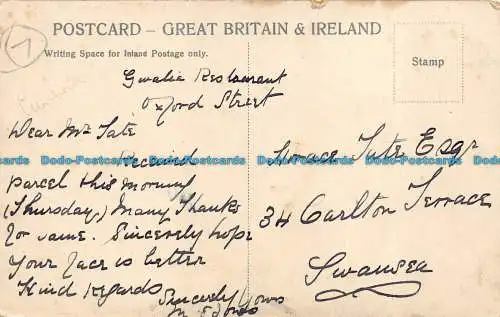 7
POSTCARD – GREAT BRITAIN & IRELAND
Writing Space for Inland Postage only.
Stamp
Gwalia Restaurant
Oxford Street
Dear Mr Tate
Received
parcel this Morning
(Thursday,) Many Thanks
for same. Sincerely hope
Your face is better
Kind Regards
Sincerely Yours
Horace Tate Esqr
34 Carlton Terrace
Swansea
Dodo-Postcards Dodo-Postcards Dodo-Postcards Dodo-Postcards Dodo-Postcards
Dodo-Postcards Dodo-Postcards Dodo-Postcards Dodo-Postcards Dodo-Postcards